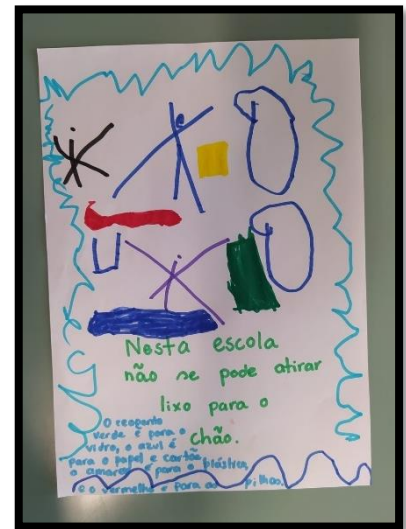 Nesta escola
não se pode atirar
lixo para o
chão.
O ecoponto
verde é para o
vidro, o azul é
para o papel e cartão,
o amarelo é para o plástico,
e o vermelho é para as pilhas.